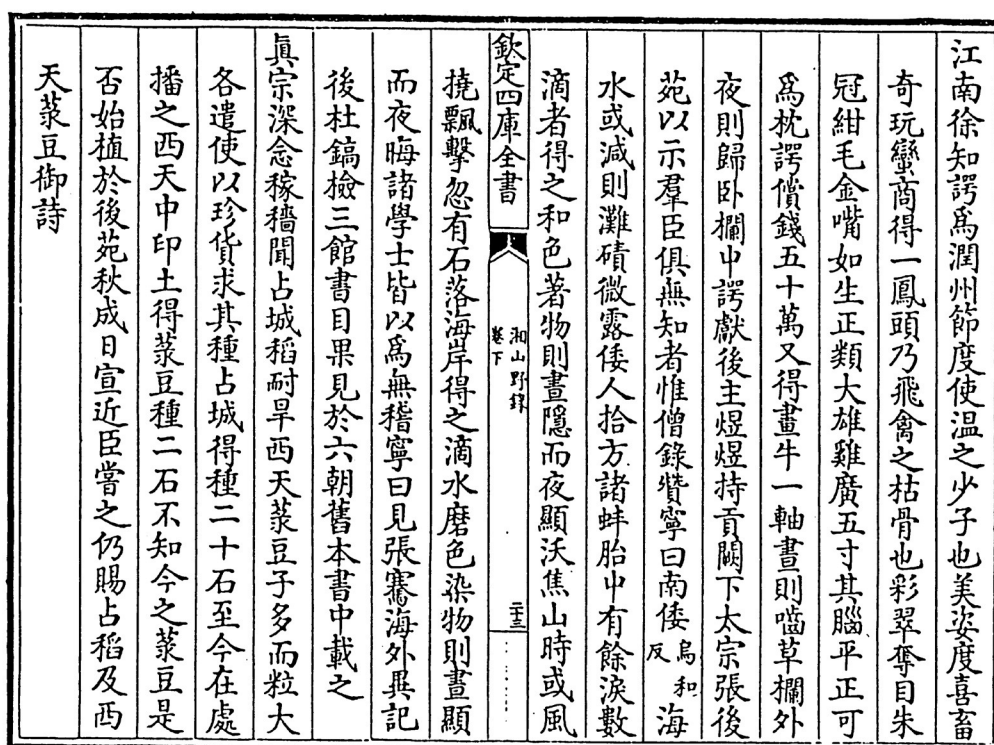 江南徐知諤爲潤州節度使温之少子也美姿度喜畜
奇玩蠻商得一鳳頭乃飛禽之枯骨也彩翠奪目朱
冠紺毛金嘴如生正類大雄雞廣五寸其腦平正可
爲枕諤償錢五十萬又得畫牛一軸晝則囓草欄外
夜則歸卧欄中諤獻後主煜煜持貢闕下太宗張後
苑以示羣臣俱無知者惟僧錄贊寧曰南倭烏和反海
水或減則灘磧微露倭人拾方諸蚌胎中有餘淚數
滴者得之和色著物則晝隱而夜顯沃焦山時或風
欽定四庫全書
湘山野錄
卷下
二十三
撓飄擊忽有石落海岸得之滴水磨色染物則晝顯
而夜晦諸學士皆以爲無稽寧曰見張騫海外異記
後杜鎬檢三館書目果見於六朝舊本書中載之
眞宗深念稼穡聞占城稻耐旱西天菉豆子多而粒大
各遣使以珍貨求其種占城得種二十石至今在處
播之西天中印土得菉豆種二石不知今之菉豆是
否始植於後苑秋成日宣近臣嘗之仍賜占稻及西
天菉豆御詩